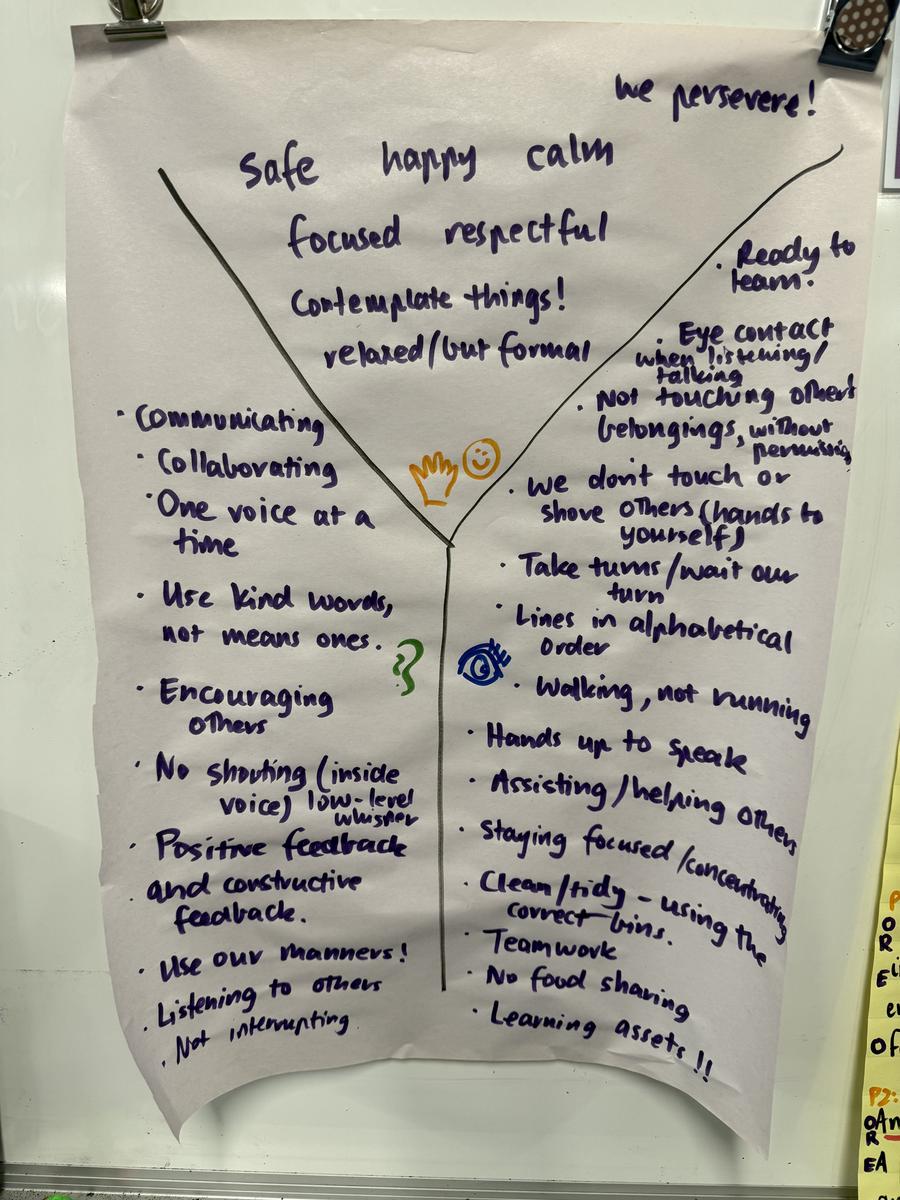 we persevere!
safe happy calm
focused respectful
Contemplate things!
relaxed/but formal
· Communicating
· Collaborating
· One voice at a
time
· Use kind words,
not means ones.
· Encouraging
others
· No shouting (inside
voice) low-level
whisper
· Positive feedback
· and constructive
feedback.
· Use our manners!
· Listening to others
· Not interrupting
· Ready to
learn.
· Eye contact
when listening/
talking
· Not touching others
belongings, without
· we don't touch or
shove others (hands to
yourself)
· Take turns/wait our
turn
· Lines in alphabetical
order
· Walking, not running
· Hands up to speak
· Assisting/helping others
· Staying focused/concentrating
· Clean/tidy - using the
correct bins.
· Teamwork
· No food sharing
· Learning assets!!
O
R
O
P2:
O
R
EA